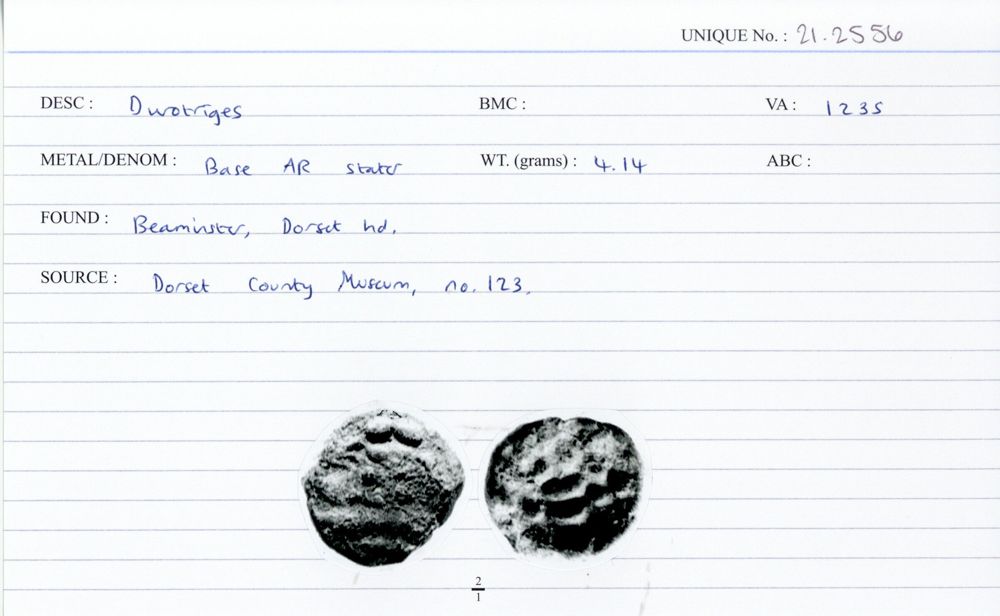 UNIQUE No. : 21.2556
DESC : Dwotriges BMC : VA : 1235
METAL/DENOM : Base AR stater WT. (grams) : 4.14 ABC :
FOUND : Beaminster, Dorset hd.
SOURCE : Dorset County Museum, no. 123.
2
1